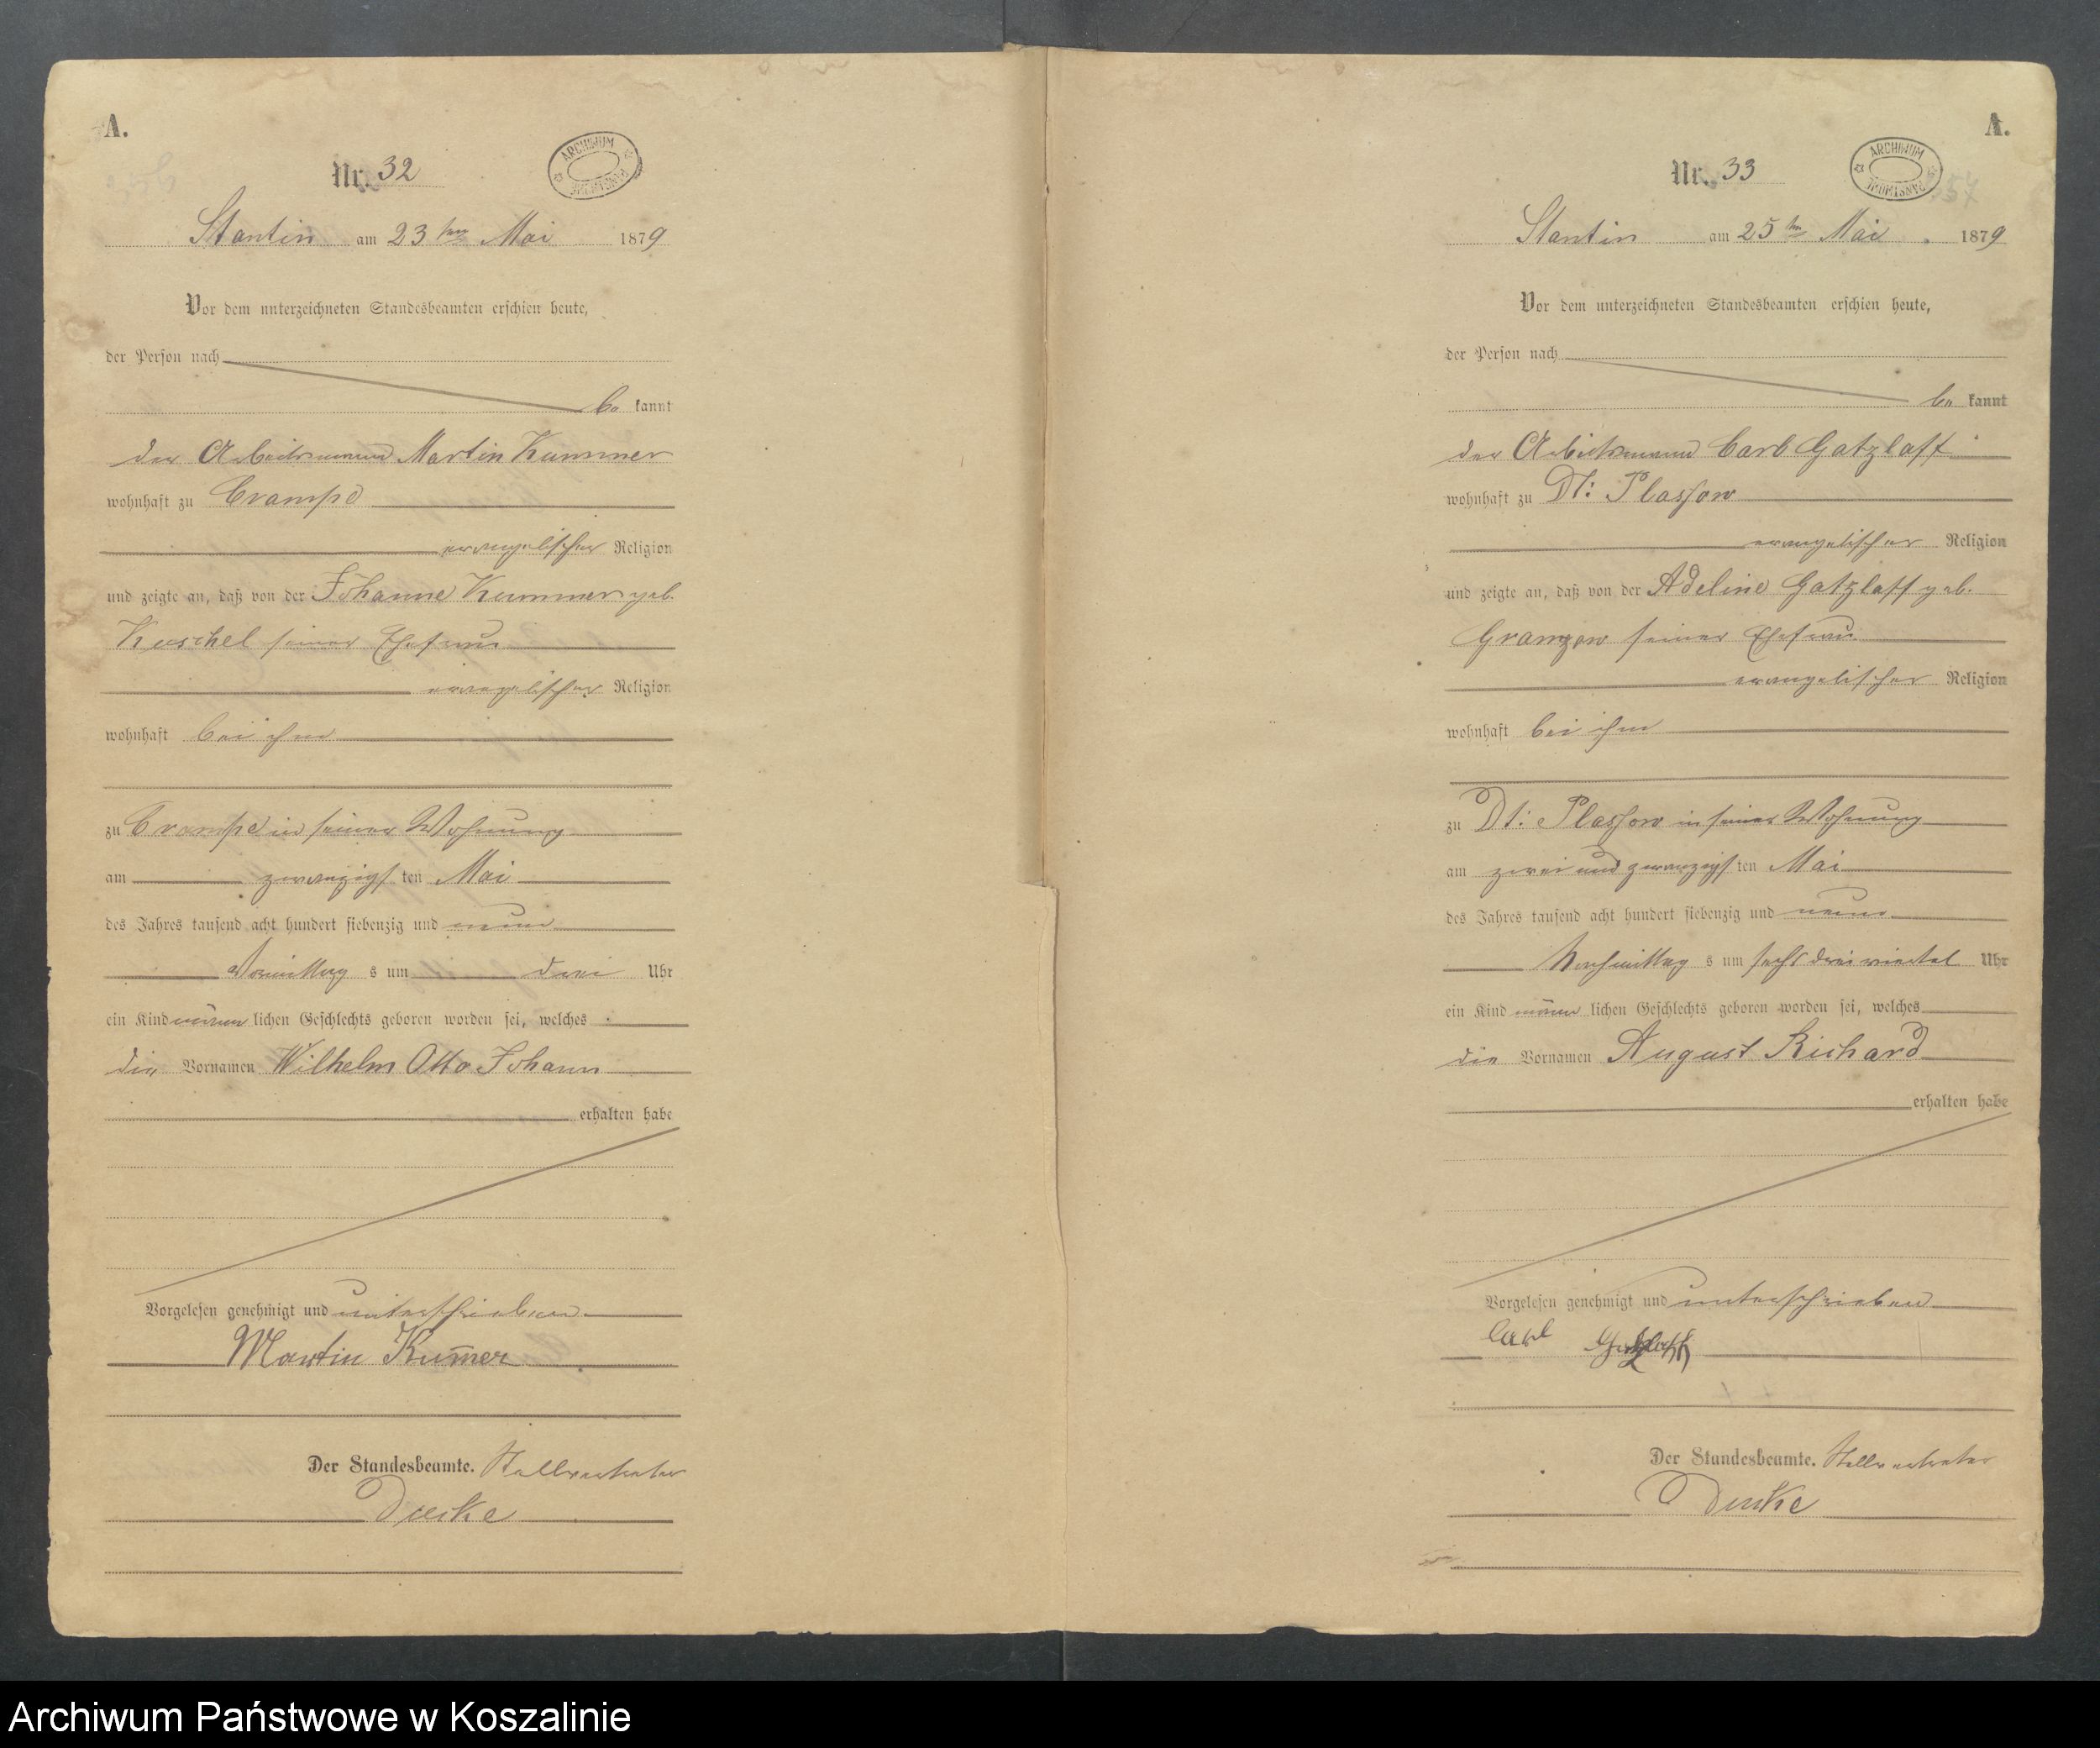 A.
Nr. 32
ARCHIWUM PAŃSTWOWE
Stantin am 23ten Mai 1879
Vor dem unterzeichneten Standesbeamten erschien heute,
der Person nach
be kannt
der Arbeitsmann Martin Kummer
wohnhaft zu Crampe
evangelischer Religion
und zeigte an, daß von der Johanne Kummer geb.
Kuschel seiner Ehefrau
evangelischer Religion
wohnhaft bei ihm
zu Crampe in seiner Wohnung
am zwanzigs ten Mai
des Jahres tausend acht hundert siebenzig und neun
Vormittag s um drei Uhr
ein Kind männ lichen Geschlechts geboren worden sei, welches
die Vornamen Wilhelm Otto Johann
erhalten habe
Vorgelesen genehmigt und unterschrieben
Martin Kum̅er
Der Standesbeamte. Stellvertreter
A.
Nr. 33
ARCHIWUM PAŃSTWOWE
57
Stantin am 25ten Mai 1879
Vor dem unterzeichneten Standesbeamten erschien heute,
der Person nach
be kannt
der Arbeitsmann Carl Gatzlaff
wohnhaft zu Dt: Plassow
evangelischer Religion
und zeigte an, daß von der Adeline Gatzlaff geb.
Granzow seiner Ehefrau
evangelischer Religion
wohnhaft bei ihm
zu Dt: Plassow in seiner Wohnung
am zwei und zwanzigs ten Mai
des Jahres tausend acht hundert siebenzig und neun
Nachmittag s um sechs dreiviertel Uhr
ein Kind männ lichen Geschlechts geboren worden sei, welches
die Vornamen August Richard
erhalten habe
Vorgelesen genehmigt und unterschrieben
Carl Gatzlaff
Der Standesbeamte. Stellvertreter
Archiwum Państwowe w Koszalinie